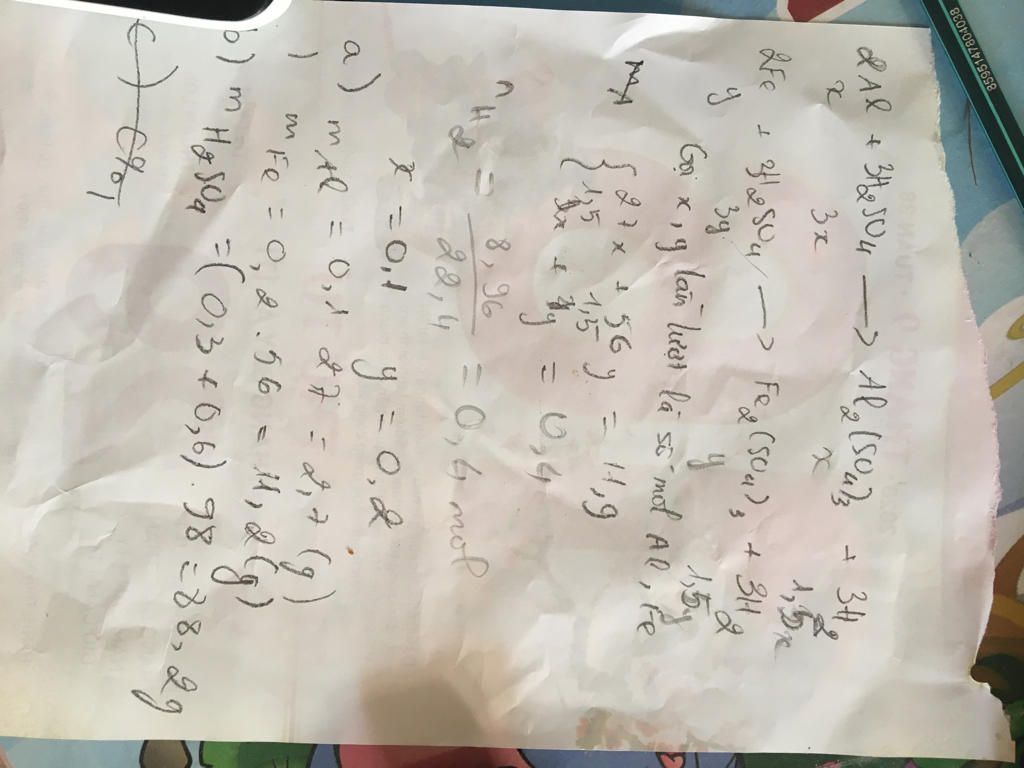 2Al + 3H2SO4 → Al2(SO4)3 + 3H2
x 3x x 1,5x
2Fe + 3H2SO4 → Fe2(SO4)3 + 3H2
y 3y y 1,5y
Gọi x, y lần lượt là số mol Al, Fe
mA
{ 27x + 56y = 11,9
1,5x + 1,5y = 0,4
nH2 = 8,96 / 22,4 = 0,4 mol
x = 0,1 y = 0,2
a) mAl = 0,1 27 = 2,7 (g)
) mFe = 0,2 . 56 = 11,2 (g)
b) mH2SO4 = (0,3 + 0,6) . 98 = 88,2g
c) C%
8595147804038